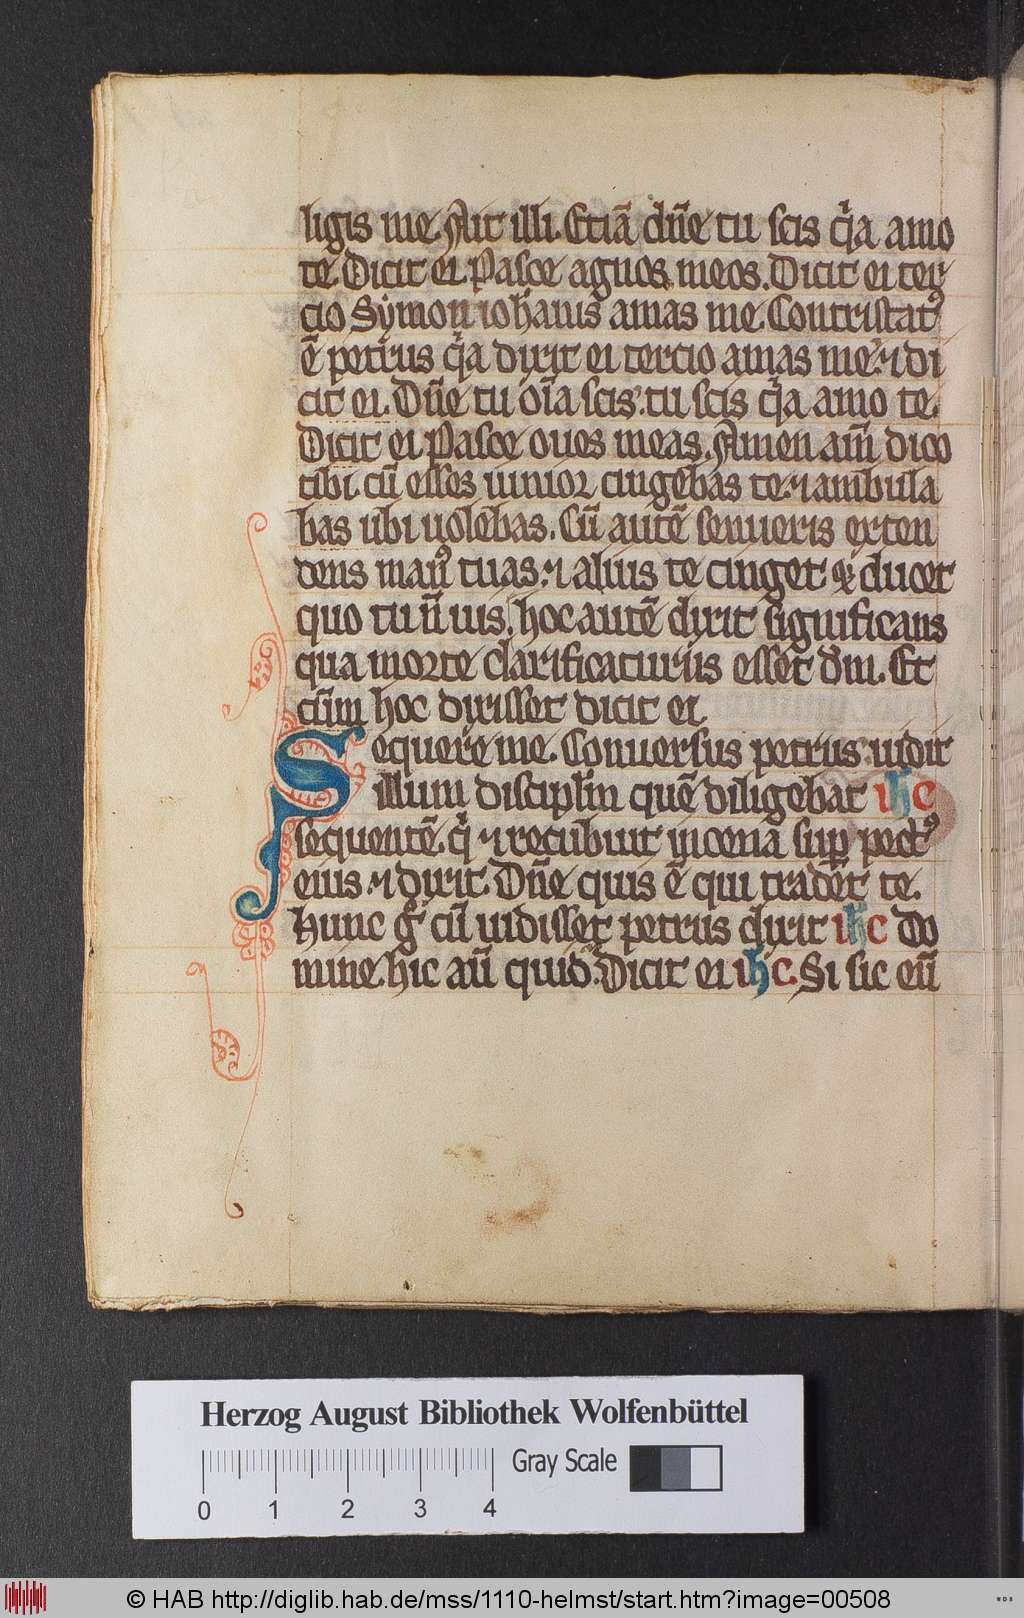 ligis me. Ait illi. Etiā dn̄e tu scis q̇a amo
te. Dicit ei. Pasce agnos meos. Dicit ei ter
cio Symon iohannis amas me. Contristatꝰ
ē petrus q̇a dixit ei tercio amas me. ⁊ di
cit ei. Dn̄e tu oīa scis. tu scis q̇a amo te.
Dicit ei. Pasce oues meas. Amen am̄ dico
tibi. cū esses iunior cingebas te. ⁊ ambula
bas ubi uolebas. Cū autē senueris exten
dens manꝰ tuas. ⁊ alius te cinget ⁊ ducet
quo tu n̄ uis. hoc autē dixit significans
qua morte clarificaturus esset dm̄. Et
cum hoc dixisset dicit ei
Sequere me. Conuersus petrus uidit
illum discipl̄m quē diligebat ihc
sequentē. q̇ ⁊ recubuit in cena suꝑ pectꝰ
eius ⁊ dixit. Dn̄e quis ē qui tradet te.
Hunc g̊ cū uidisset petrus dixit ihc Do
mine. hic aū quid. Dicit ei ihc. Si sic eū
Herzog August Bibliothek Wolfenbüttel
Gray Scale
0 1 2 3 4
© HAB http://diglib.hab.de/mss/1110-helmst/start.htm?image=00508